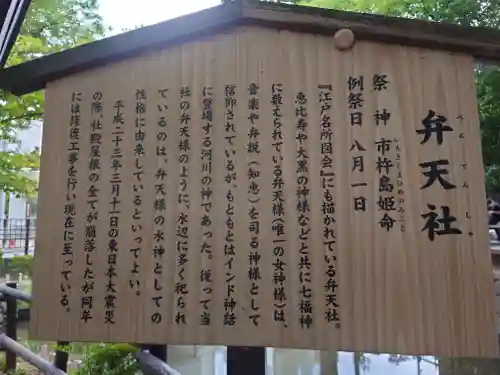 弁天社
べんてんしゃ
祭神 市杵島姫命
いちきしまひめのみこと
例祭日 八月一日
『江戸名所図会』にも描かれている弁天社。
恵比寿や大黒の神様などと共に七福神
に数えられている弁天様（唯一の女神様）は、
音楽や弁説（知恵）を司る神様として
信仰されているが、もともとはインド神話
に登場する河川の神であった。従って当
社の弁天様のように、水辺に多く祀られ
ているのは、弁天様の水神としての
性格に由来しているといってよい。
平成二十三年三月十一日の東日本大震災
の際、社殿屋根の全てが崩落したが同年
には修復工事を行い現在に至っている。